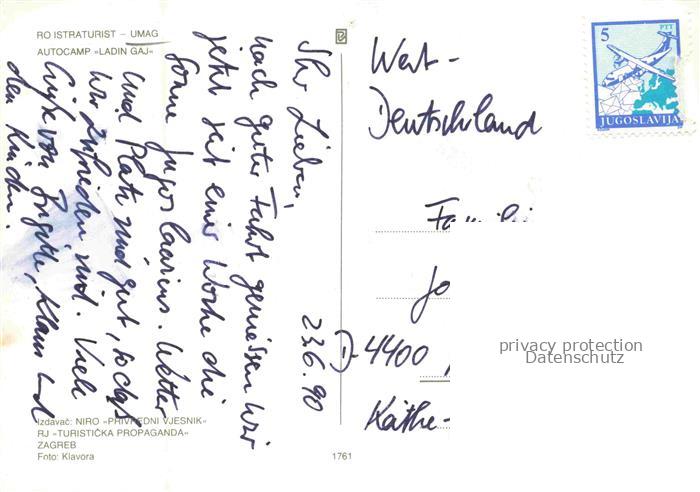 RO ISTRATURIST – UMAG
AUTOCAMP »LADIN GAJ«
23.6.90
Ihr Lieben,
nach guter Fahrt geniessen wir
jetzt seit einer Woche die
Sonne Jugoslawiens. Wetter
und Platz sind gut, so daß
wir zufrieden sind. Viele
Grüße von Brigitte, Klaus und
den Kindern.
Izdavač: NIRO »PRIVREDNI VJESNIK«
RJ »TURISTIČKA PROPAGANDA«
ZAGREB
Foto: Klavora
1761
5
PTT
JUGOSLAVIJA
West-
Deutschland
Famili
Jo
D-4400
Käthe-
privacy protection
Datenschutz